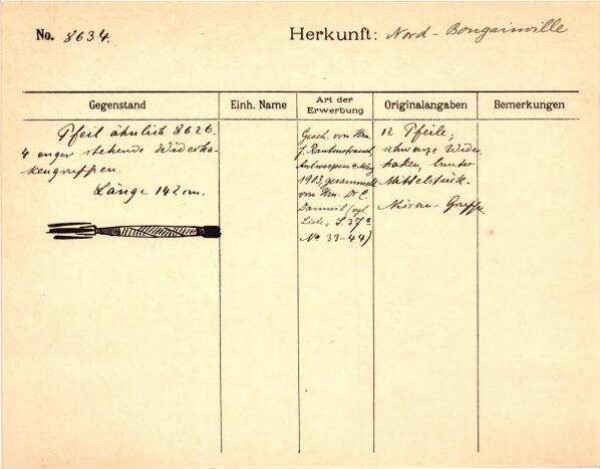 No. 8634.
Herkunft: Nord-Bougainville
Gegenstand
Einh. Name
Art der
Erwerbung
Originalangaben
Bemerkungen
Pfeil ähnlich 8626.
4 enger stehende Widerha-
kengruppen.
Länge 142 cm.
Gesch. von Hrn.
J. Rautenstrauch,
Antwerpen März
1903, gesammelt
von Hrn. Dr. E.
Danneil (vgl.
Liste, S. 37
No 33-44)
12 Pfeile,
schwarze Wider-
haken, bunter
Mittelstück.